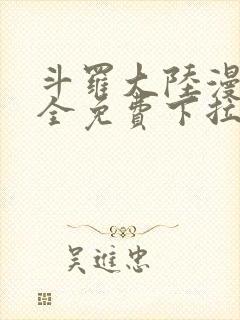 斗羅大陸漫
全免費下拉
吳進忠